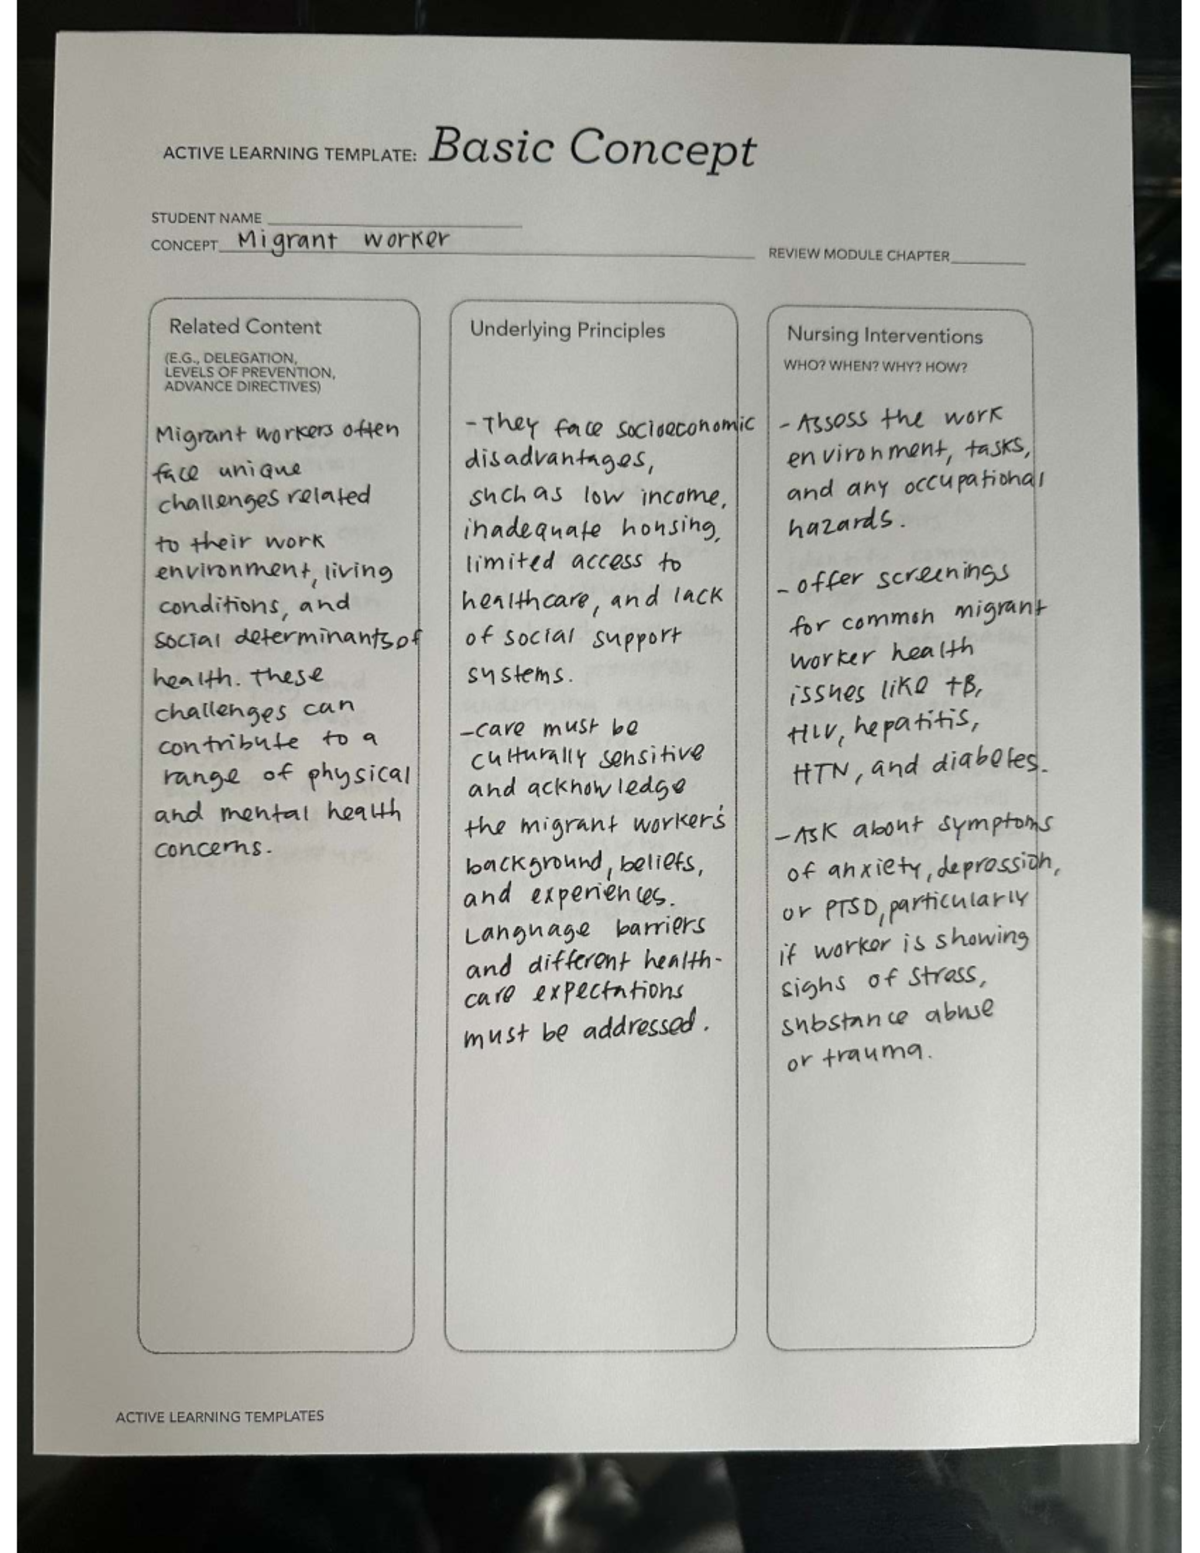 ACTIVE LEARNING TEMPLATE: Basic Concept
STUDENT NAME
CONCEPT Migrant worker
REVIEW MODULE CHAPTER
Related Content
(E.G., DELEGATION,
LEVELS OF PREVENTION,
ADVANCE DIRECTIVES)
Migrant workers often
face unique
challenges related
to their work
environment, living
conditions, and
social determinants of
health. These
challenges can
contribute to a
range of physical
and mental health
concerns.
Underlying Principles
- They face socioeconomic
disadvantages,
such as low income,
inadequate housing,
limited access to
healthcare, and lack
of social support
systems.
- care must be
culturally sensitive
and acknowledge
the migrant worker's
background, beliefs,
and experiences.
Language barriers
and different health-
care expectations
must be addressed.
Nursing Interventions
WHO? WHEN? WHY? HOW?
- Assess the work
environment, tasks,
and any occupational
hazards.
- offer screenings
for common migrant
worker health
issues like TB,
HIV, hepatitis,
HTN, and diabetes.
- Ask about symptoms
of anxiety, depression,
or PTSD, particularly
if worker is showing
signs of stress,
substance abuse
or trauma.
ACTIVE LEARNING TEMPLATES